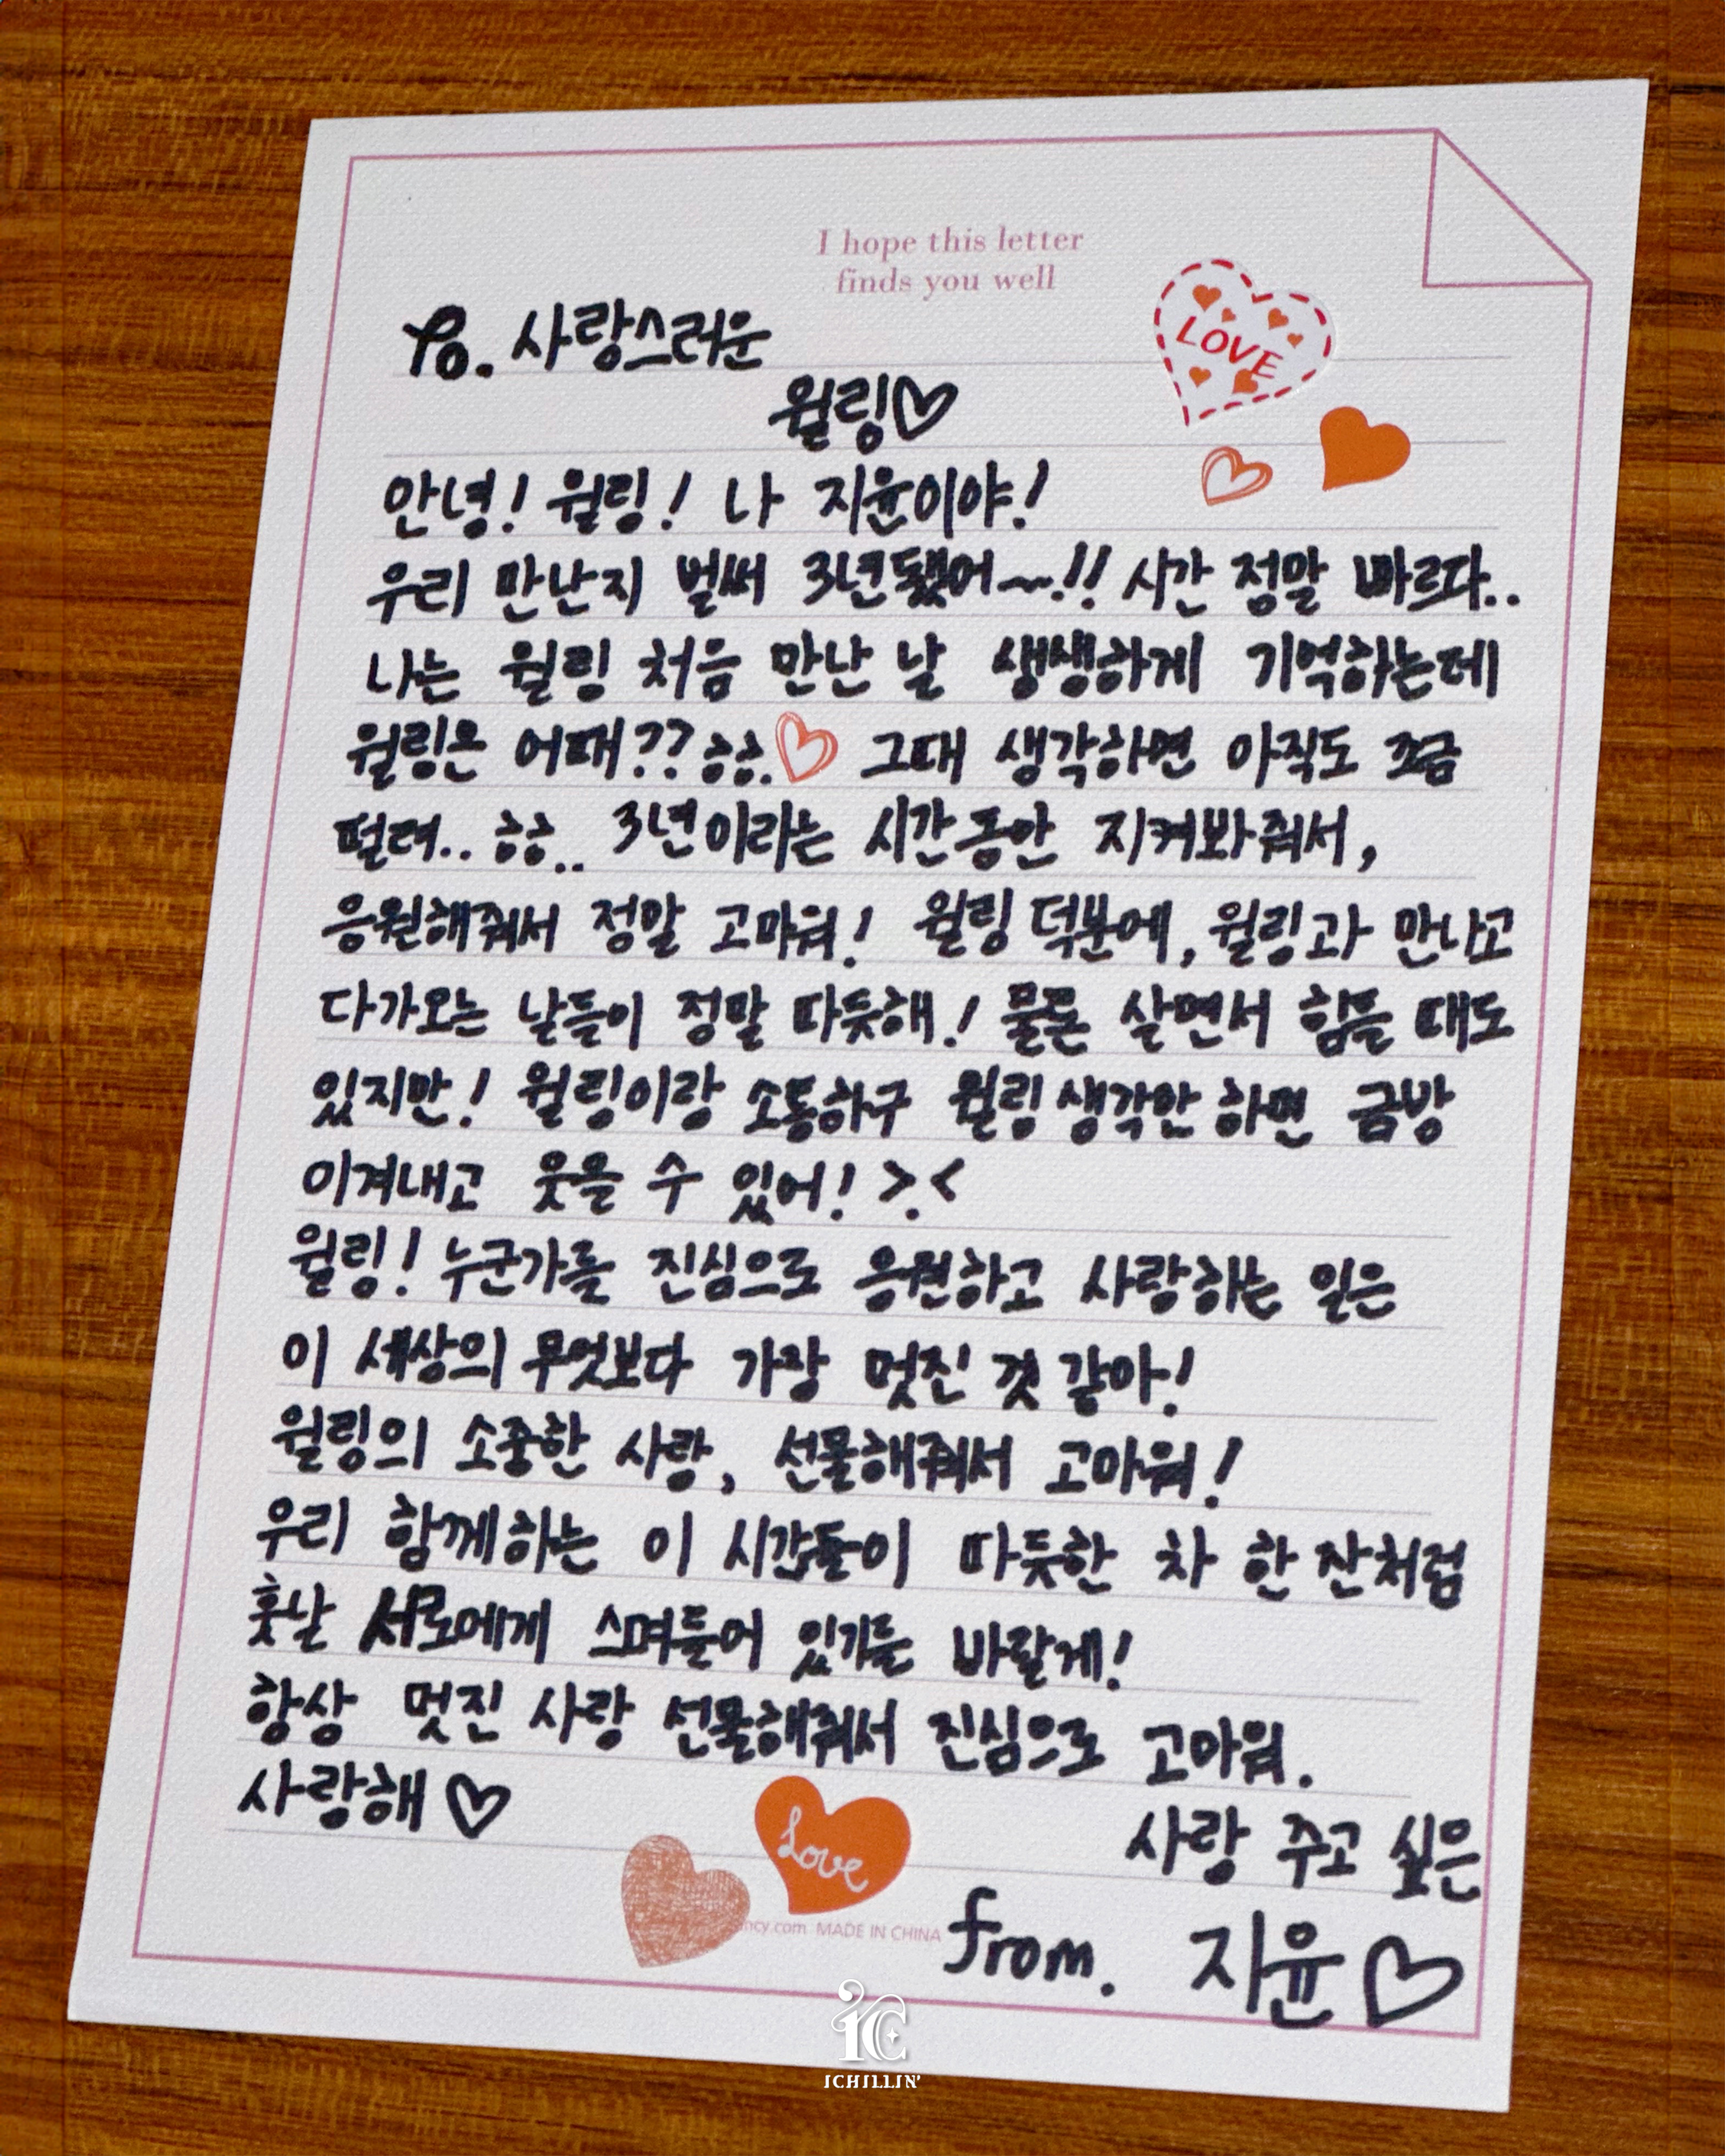 I hope this letter
finds you well
LOVE
To. 사랑스러운
윌링♡
안녕! 윌링! 나 지윤이야!
우리 만난지 벌써 3년됐어~!! 시간 정말 빠르다..
나는 윌링 처음 만난 날 생생하게 기억하는데
윌링은 어때?? ㅎㅎ. 그때 생각하면 아직도 조금
떨려.. ㅎㅎ.. 3년이라는 시간동안 지켜봐줘서,
응원해줘서 정말 고마워! 윌링 덕분에, 윌링과 만나고
다가오는 날들이 정말 따듯해! 물론 살면서 힘들 때도
있지만! 윌링이랑 소통하구 윌링 생각만 하면 금방
이겨내고 웃을 수 있어! >.<
윌링! 누군가를 진심으로 응원하고 사랑하는 일은
이 세상의 무엇보다 가장 멋진 것 같아!
윌링의 소중한 사랑, 선물해줘서 고마워!
우리 함께하는 이 시간들이 따듯한 차 한 잔처럼
훗날 서로에게 스며들어 있기를 바랄게!
항상 멋진 사랑 선물해줘서 진심으로 고마워.
사랑해 ♡
사랑 주고 싶은
Love
ncy.com MADE IN CHINA
from. 지윤♡
ICHILLIN'